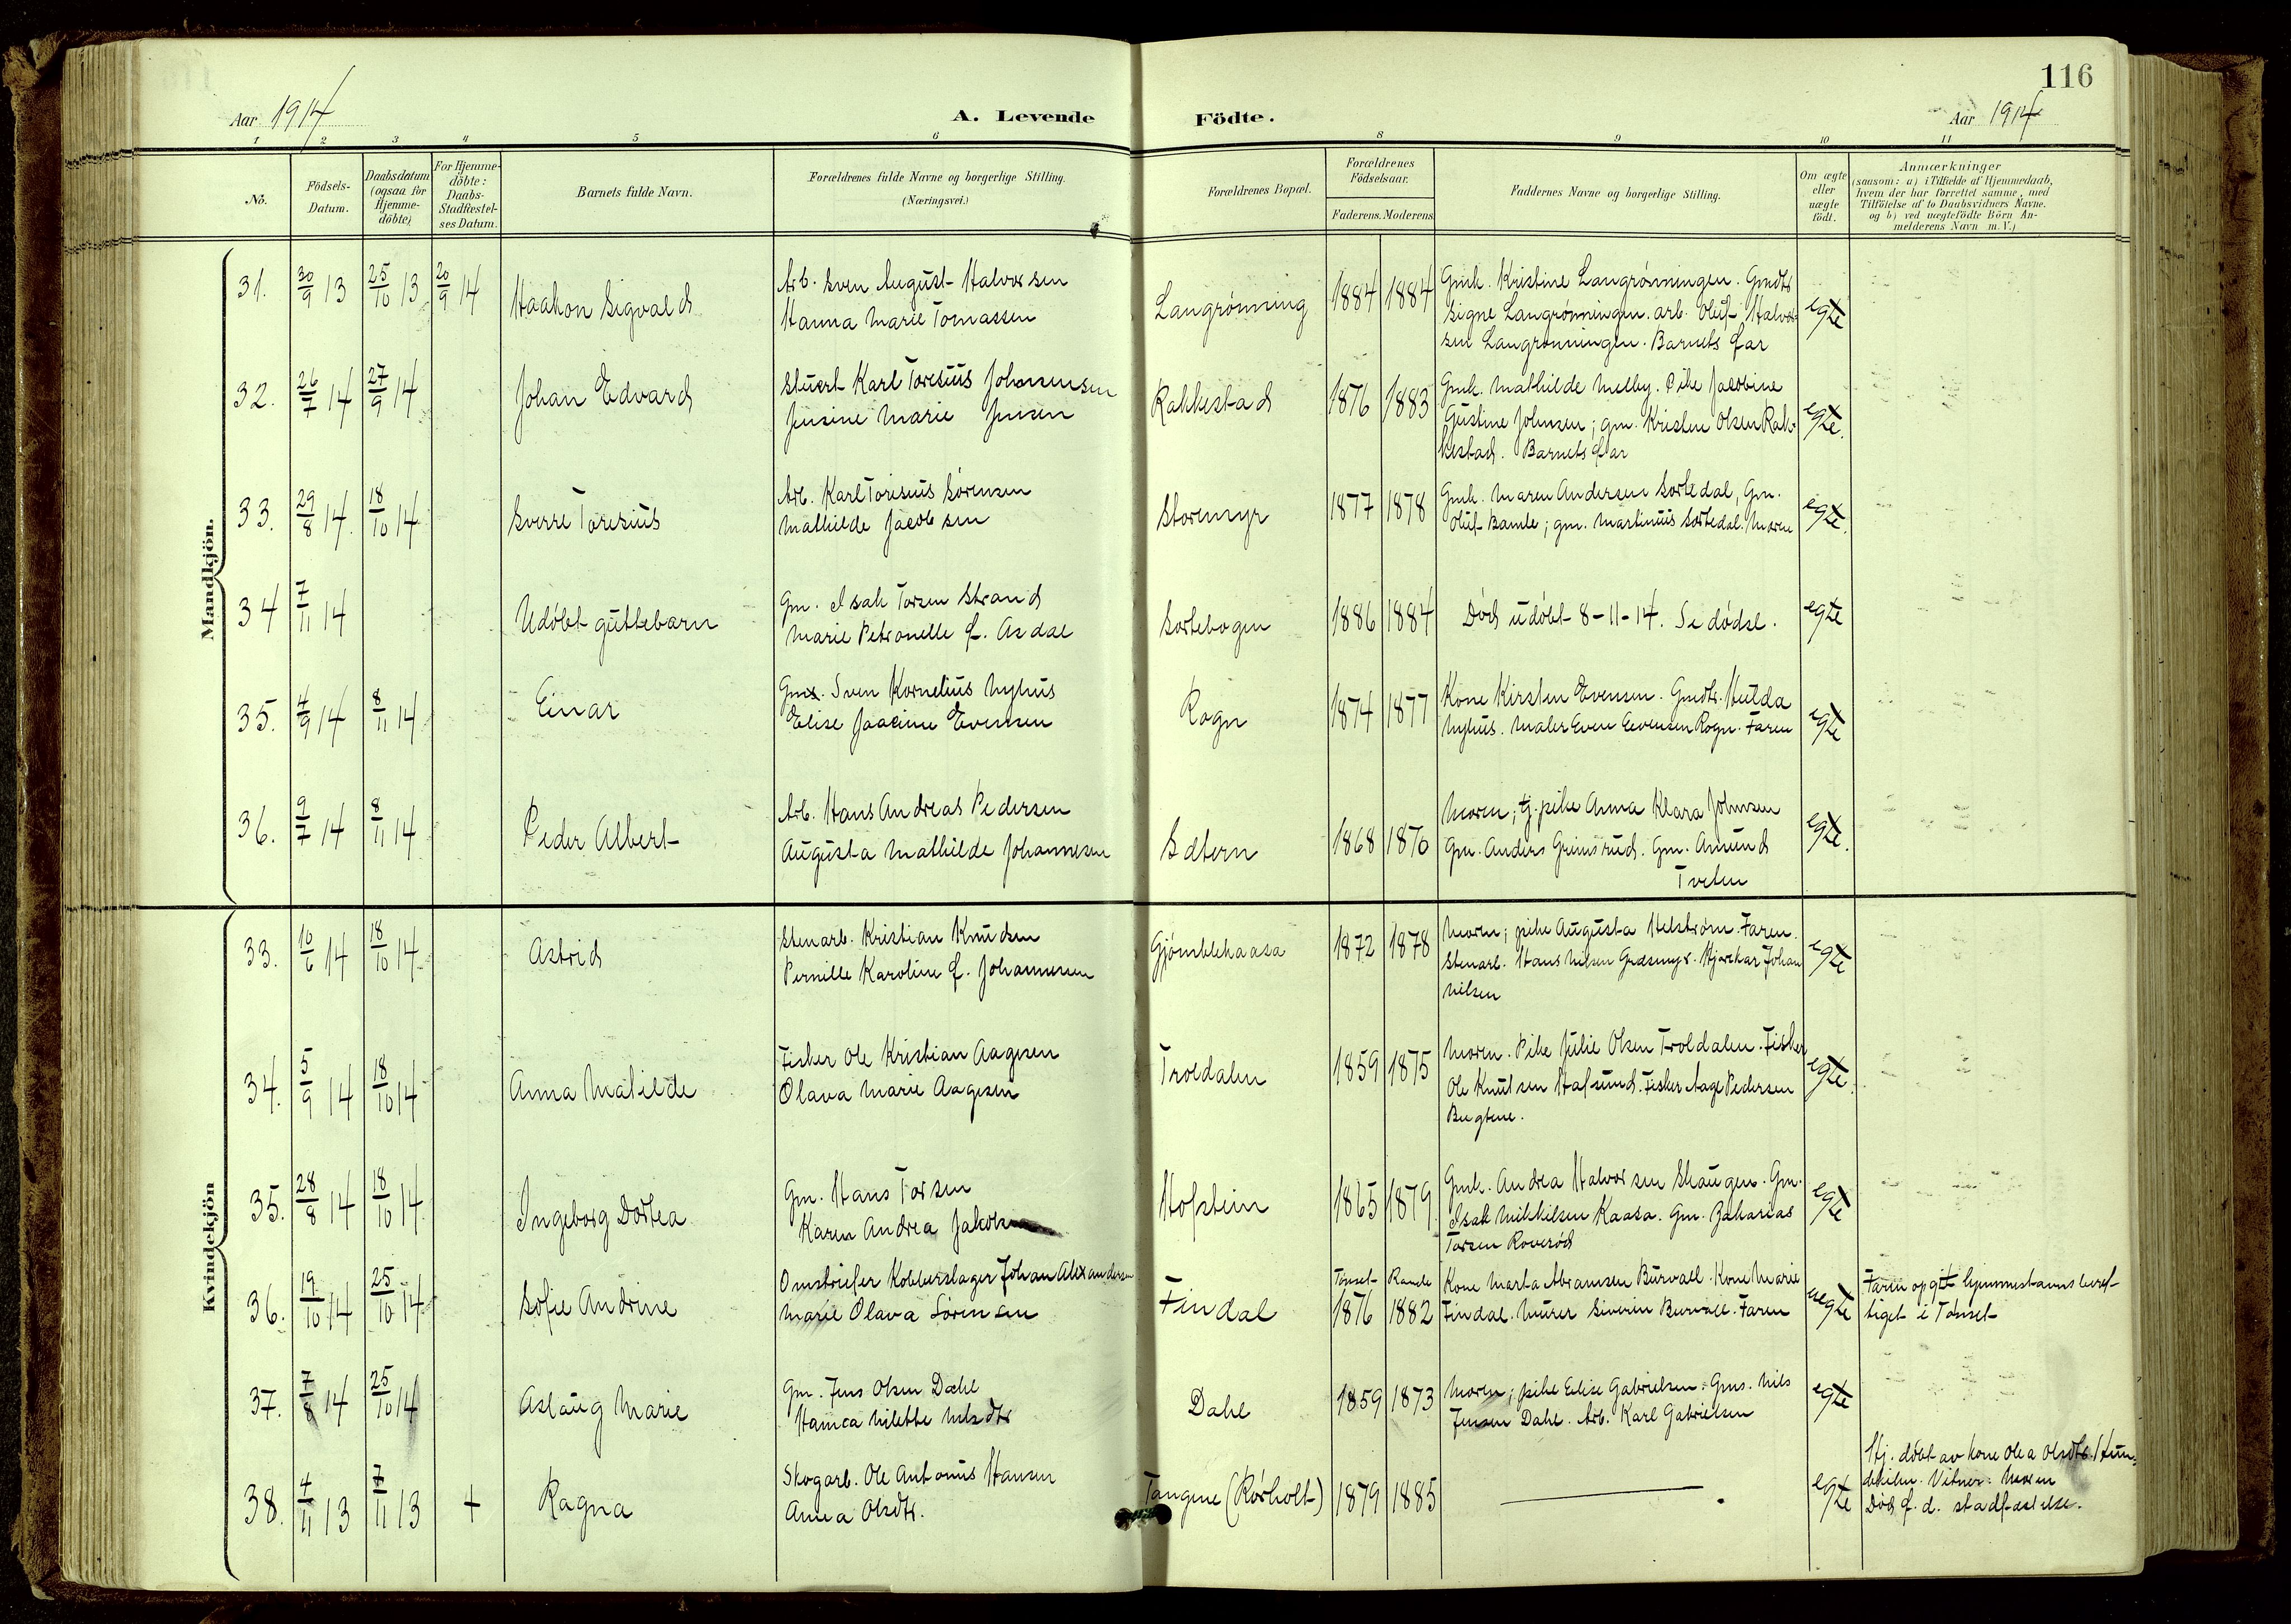 116
Aar 1914
A. Levende Födte.
Aar 1914
1 2 3 4 5 6 8 9 10 11
No.
Födsels-Datum.
Daabsdatum (ogsaa for Hjemme-döbte)
For Hjemme-döbte: Daabs-Stadfæstel-ses Datum.
Barnets fulde Navn.
Forældrenes fulde Navne og borgerlige Stilling.
(Næringsvei.)
Forældrenes Bopæl.
Forældrenes Födselsaar.
Faderens. Moderens
Faddernes Navne og borgerlige Stilling.
Om ægte eller uægte födt.
Anmærkninger
(saasom: a) i Tilfælde af Hjemmedaab,
hvem der har forrettet samme, med
Tilföielse af to Daabsvidners Navne.
og b) ved uægtefödte Börn An-
melderens Navn m. V.)
Mandkjön.
31. 30/9 13 25/10 13 20/9 14 Haakon Sigvald
Arb. Sven August Halvorsen
Hanna Marie Tomassen
Langrønning 1884 1884
Gmk. Kristine Langrønningen. Gmdtr
Signe Langrønningen. arb. Oluf Halvor-
sen Langrønningen. Barnets far
egte
32. 26/7 14 27/9 14 Johan Edvard
Stuert Karl Toresius Johannensen
Jensine Marie Jensen
Rakkestad 1876 1883
Gmk. Mathilde Melby. Pike Jacobine
Gustine Johnsen; gm. Kristen Olsen Rak-
kestad. Barnets far
egte.
33. 29/8 14. 18/10 14 Sverre Toresius
Arb. Karl Toresius Sørensen
Mathilde Jacobsen
Storemyr 1877 1878
Gmk. Maren Andersen Sortedal, Gm.
Oluf Bamle; gm. Martinius Sortedal. Moren
egte.
34 7/11 14 Udøbt guttebarn
Gm. Isak Torsen Strand
Marie Petronelle f. Asdal
Sortebogen 1886 1884
Død udøbt 8-11-14. Se dødsl.
egte
35. 4/9 14 8/11 14 Einar
Gms. Sven Kornelius Nyhus
Elise Jaacine Evensen
Rogn 1874 1877
Kone Kirsten Evensen. Gmdtr. Hulda
Nyhus. Maler Even Evensen Rogn. Faren
egte
36. 9/7 14 8/11 14 Peder Albert
Arb. Hans Andreas Pedersen
Augusta Mathilde Johannesen
1868 1870
Moren; tj. pike Anna Klara Johnsen
Gm. Anders Grimsrud. Gm. Amund
Tveten
egte.
Kvindekjön
33. 10/6 14 18/10 14 Astrid
Stenarb. Kristian Knudsen
Pernille Karoline f. Johannesen
Gjømlekaasa 1872 1878
Moren; pike Augusta Helstrøm. Faren.
Stenarb. Hans Nilsen Hjorekar Johan
Nilsen
egte
34. 5/9 14 18/10 14 Anna Matilde
Fisker Ole Kristian Aagesen
Olava Marie Aagesen
Troldalen 1859 1875
Moren. Pike Julie Olsen Troldalen. Fisker
Ole Knutsen Hafsund. Fisker Aage Pedersen
Bugtene.
egte.
35. 28/8 14 18/10 14 Ingeborg Dortea
Gm. Hans Torsen
Karen Andrea Jakobs
Hofstein 1865 1879
Gmk. Andrea Halvorsen Skaugen. Gm.
Isak Mikkelsen Kaasa. Gm. Zakarias
Torsen Roverød
egte
36. 19/10 14 25/10 14 Sofie Andrine
Omstreifer Kobberslager Johan Alexandersen
Marie Olava Sörensen
Findal Tönset 1876 Rande 1882
Kone Marta Abramsen Burvall. Kone Marie
Findal. Murer Siverin Burvall. Faren
uegte
Faren opgit hjemmestavnsberet-
tiget i Tönset
37. 7/8 14 25/10 14 Aslaug Marie
Gm. Jens Olsen Dahl
Hanica Nilette Nilsdtr
Dahl 1859 1873
Moren; pike Elise Gabrielsen. Gms. Nils
Jensen Dahl. Arb. Karl Gabrielsen
egte
38. 4/11 13 7/11 13 + Ragna
Skogarb. Ole Antonius Hansen
Anna Olsdtr.
Tangene (Rørholt) 1879 1885 —
egte
Hj. døbt av kone Olea Olsdtr.
Vitner: Moren
Død f. d. stadfæstelse.